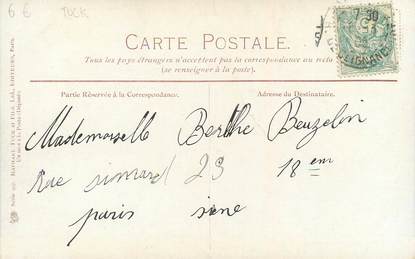 6 € TUCK
CARTE POSTALE.
Tous les pays étrangers n'acceptent pas la correspondance au recto
(se renseigner à la poste).
Partie Réservée à la Correspondance.
Adresse du Destinataire.
Mademoiselle Berthe Beuzelin
Rue simard 23 18 em
paris sine
RAPHAEL TUCK & FILS, Ltd, EDITEURS, Paris.